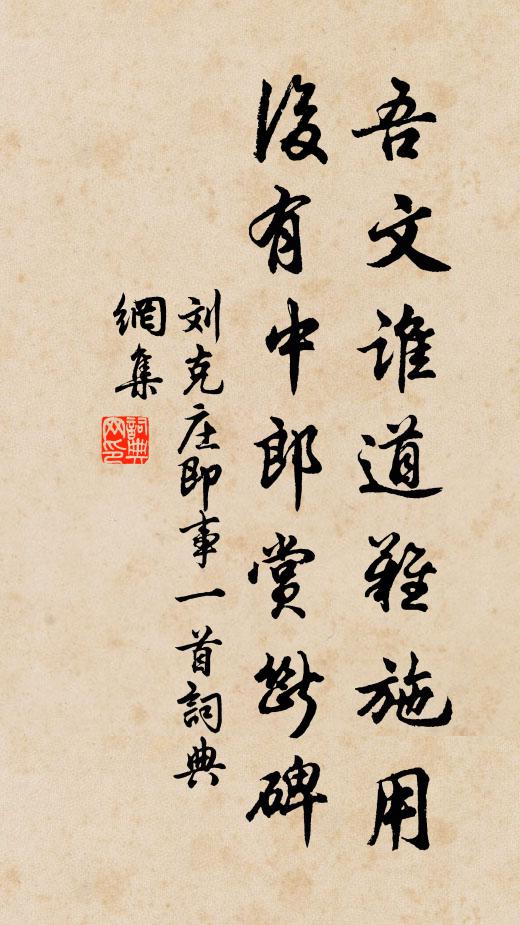 吾文谁道難施用
後有中郎賞斷碑
刘克庄即事一首詞典
網集
詞典网印